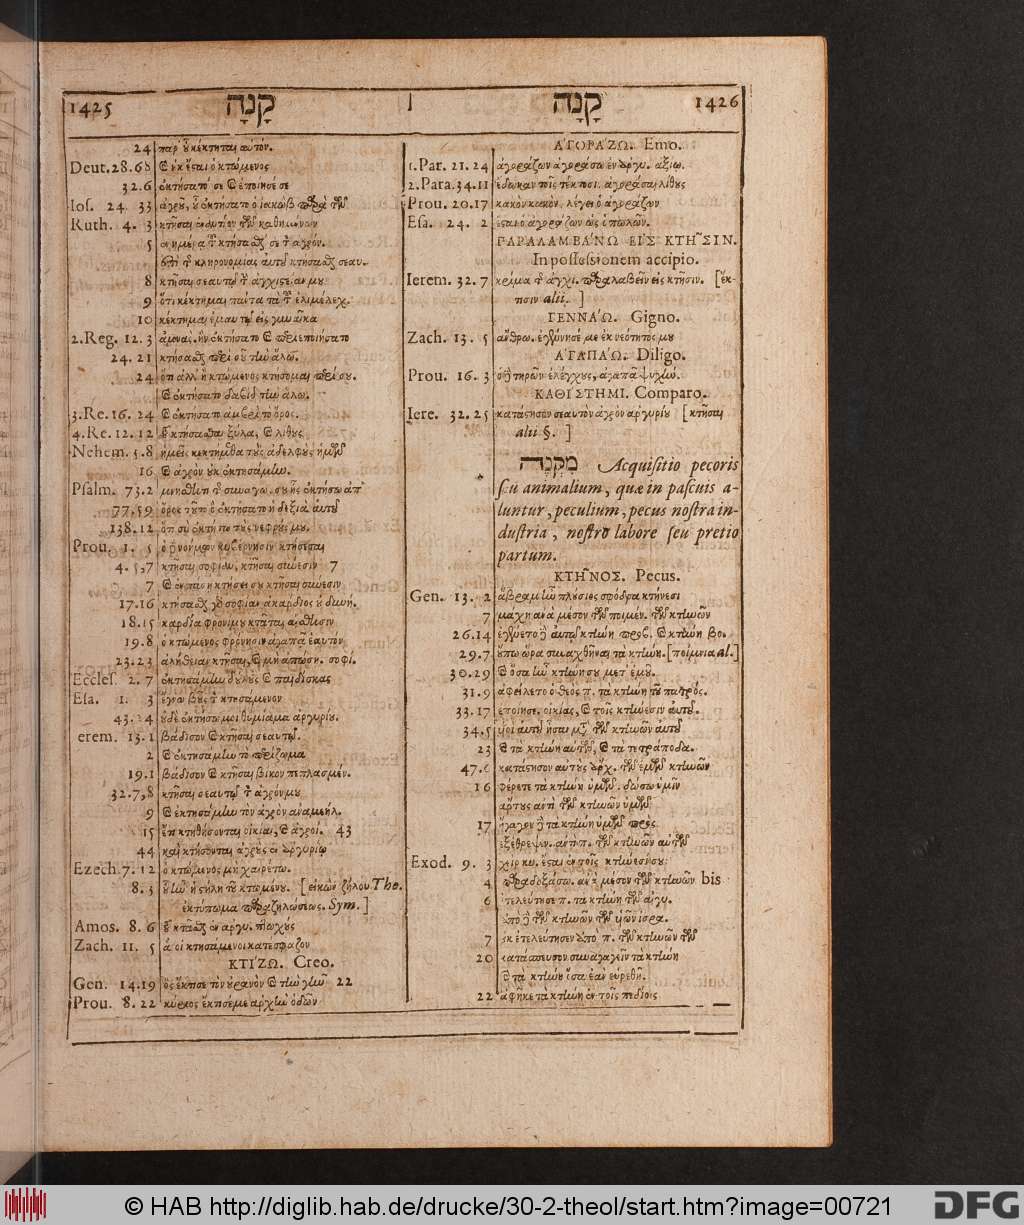 1425 קָנָה
24 παρ οὗ κέκτηται αὐτόν.
Deut. 28. 68 οὐκ ἔσται ὁ κτώμενος
32. 6 ἐκτήσατό σε ἐποίησέ σε
Ios. 24. 33 ἀγροῦ, οὗ ἐκτήσατο ὁ ἰακὼβ παρὰ τῶν
Ruth. 4. 3
5
8
9 ὅτι κέκτημαι πάντα τὰ τοῦ ἐλιμέλεχ.
10 κέκτημαι ἐμαυτῷ εἰς γυναῖκα
2. Reg. 12. 3 ἀμνὰς. ἣν ἐκτήσατο
24. 21 κτήσασθαι παρὰ σοῦ τὴν ἅλω.
24
ἐκτήσατο δαβὶδ τὴν ἅλω.
3. Re. 16. 24 ἐκτήσατο ἀμβρὶ τὸ ὄρος.
4. Re. 12. 12 κτήσασθαι ξύλα, λίθους
Nehem. 5. 8 ἡμεῖς κεκτήμεθα τοὺς ἀδελφοὺς ἡμῶν
16 ἀγρὸν οὐκ ἐκτησάμην.
Psalm. 73. 2
77, 59 ὄρος τοῦτο ὃ ἐκτήσατο ἡ δεξιὰ αὐτοῦ
138. 12 ὅτι σὺ ἐκτήσω τοὺς νεφρούς μου.
Prou. 1. 5 κυβέρνησιν κτήσεται
4. 5, 7 κτῆσαι σοφίαν, κτῆσαι σύνεσιν 7
7
17. 16 κτήσασθαι σοφίαν ἀκάρδιος οὐ
18. 15 καρδία φρονίμου κτᾶται αἴσθησιν
19. 8 ὁ κτώμενος φρόνησιν ἀγαπᾷ ἑαυτόν
23. 23 ἀλήθειαν κτῆσαι,
Eccles. 2. 7 ἐκτησάμην δούλους παιδίσκας
Esa. 1. 3 ἔγνω βοῦς τὸν κτησάμενον
43. 24 οὐδὲ ἐκτήσω μοι θυμίαμα ἀργυρίου.
erem. 13. 1 βάδισον κτῆσαι σεαυτῷ.
2 ἐκτησάμην τὸ περίζωμα
19. 1 βάδισον κτῆσαι βῖκον πεπλασμέν.
32. 7, 8 κτῆσαι σεαυτῷ τὸν ἀγρόν μου
9 ἐκτησάμην τὸν ἀγρὸν ἀναμεήλ.
15 ἔτι κτηθήσονται οἰκίαι, ἀγροί. 43
44 καὶ κτήσονται ἀγροὺς ἐν ἀργυρίῳ
Ezech. 7. 12 ὁ κτώμενος μὴ χαιρέτω.
8. 3 οὗ ἦν ἡ στήλη τοῦ κτωμένου. [εἰκὼν ζήλου The.
ἐκτύπωμα παραζηλώσεως. Sym.]
Amos. 8. 6 τοῦ κτᾶσθαι ἐν ἀργυ. πτωχούς
Zach. 11. 5 ἃ οἱ κτησάμενοι κατέσφαζον
ΚΤΙΖΩ. Creo.
Gen. 14. 19 ὃς ἔκτισε τὸν οὐρανὸν τὴν γῆν 22
Prou. 8. 22 κύριος ἔκτισέ με ἀρχὴν ὁδῶν
קָנָה 1426
ἈΓΟΡΆΖΩ. Emo.
1. Par. 21. 24 ἀγοράζων ἀγοράσω ἐν ἀργυ. ἀξίῳ.
2. Para. 34. 11 ἔδωκαν τοῖς τέκτοσι. ἀγοράσαι λίθους
Prou. 20. 17 κακὸν κακὸν, λέγει ὁ ἀγοράζων
Esa. 24. 2 ἔσται ὁ ἀγοράζων ὡς ὁ πωλῶν.
ΠΑΡΑΛΑΜΒΆΝΩ ΕἸΣ ΚΤΗ͂ΣΙΝ.
In possessionem accipio.
Ierem. 32. 7 κρίμα τοῦ ἀγχι. παραλαβεῖν εἰς κτῆσιν. [ἔκ-
τησιν alii. ]
ΓΕΝΝΆΩ. Gigno.
Zach. 13. 5 ἄνθρω. ἐγέννησέ με ἐκ νεότητος μου
ἈΓΑΠΆΩ. Diligo.
Prou. 16. 3 τηρῶν ἐλέγχους, ἀγαπᾷ ψυχήν.
ΚΑΘΙΣΤΗΜΙ. Comparo.
Iere. 32. 25 κατάστησον σεαυτὸν ἀγρὸν ἀργυρίου [κτῆσαι
alii §. ]
מִקְנֶה Acquisitio pecoris
seu animalium, quæ in pascuis a-
luntur, peculium, pecus nostra in-
dustria, nostro labore seu pretio
partum.
ΚΤΗ͂ΝΟΣ. Pecus.
Gen. 13. 2 ἄβραμ ἦν πλούσιος σφόδρα κτήνεσι
7 μάχη ἀνὰ μέσον τῶν ποιμέν. τῶν κτηνῶν
26. 14 ἐγένετο δὲ αὐτῷ κτήνη προβ. κτήνη βο.
29. 7 οὔπω ὥρα συναχθῆναι τὰ κτήνη. [ποίμνια al.]
30. 29 ὅσα ἦν κτήνη σου μετ' ἐμοῦ.
31. 9 ἀφείλετο ὁ θεὸς π. τὰ κτήνη τοῦ πατρός.
33. 17 ἐποίησε. οἰκίας, τοῖς κτήνεσιν αὐτοῦ.
34. 5 υἱοὶ αὐτοῦ ἦσαν μετὰ τῶν κτηνῶν αὐτοῦ
23 τὰ κτήνη αὐτῶν, τὰ τετράποδα.
47. 6 κατάστησον αὐτοὺς ἄρχ. τῶν ἐμῶν κτηνῶν
16 φέρετε τὰ κτήνη ὑμῶν. δώσω ὑμῖν
ἄρτους ἀντὶ τῶν κτηνῶν ὑμῶν
17 ἤγαγον δὲ τὰ κτήνη ὑμῶν πρὸς
ἐξέθρεψεν. ἀντὶ π. τῶν κτηνῶν αὐτῶν
Exod. 9. 3 χεὶρ κυ. ἔσται ἐν τοῖς κτήνεσί σου:
4 παραδοξάσω. ἀνὰ μέσον τῶν κτηνῶν bis
6 ἐτελεύτησε π. τὰ κτήνη τῶν αἰγυ.
ἀπὸ δὲ τῶν κτηνῶν τῶν υἱῶν ἰσρα.
7 οὐκ ἐτελεύτησεν ἀπὸ π. τῶν κτηνῶν τῶν
20 κατάσπευσον συναγαγεῖν τὰ κτήνη
τὰ κτήνη ὅσα ἐὰν εὑρεθῇ.
22 ἀφῆκε τὰ κτήνη ἐν τοῖς πεδίοις
© HAB http://diglib.hab.de/drucke/30-2-theol/start.htm?image=00721
DFG